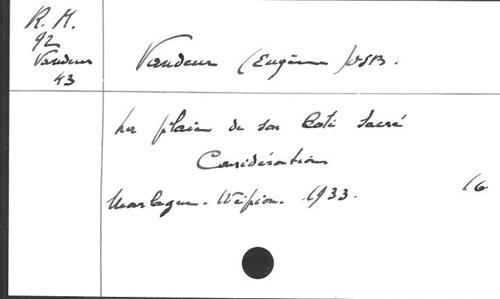 R. M.
92
Vandeur
43
Vandeur (Eugène) OSB.
La plaie de son Coté Sacré
Considérations
Marlagne - Wépion. 1933. 16